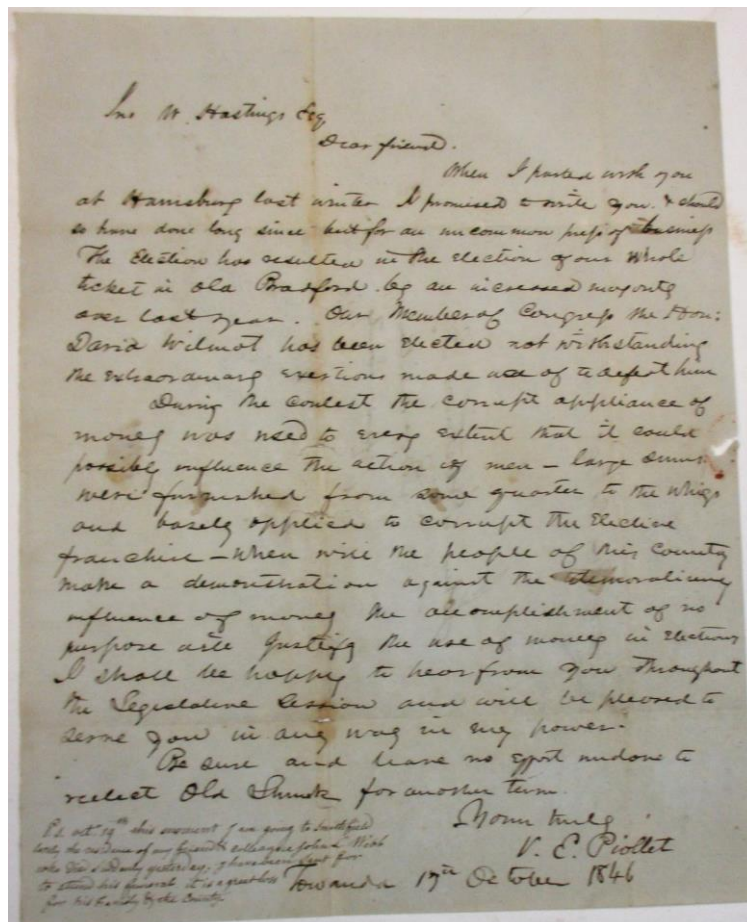 Jno W. Hastings Esq
Dear friend.
When I parted with you
at Harrisburg last winter I promised to write you. & should
so have done long since but for an uncommon press of business
The Election has resulted in the election of our whole
ticket in Old Bradford by an increased majority
over last year. Our Member of Congress the Hon:
David Wilmot has been elected not withstanding
the extraordinary exertions made use of to defeat him
During the contest the corrupt appliance of
money was used to every extent that it could
possibly influence the action of men – large sums
were furnished from some quarter to the Whigs
and basely applied to corrupt the Elective
franchise – When will the people of this County
make a demonstration against the demoralizing
influence of money the accomplishment of no
purpose will Justify the use of money in elections
I shall be happy to hear from you throughout
the Legislative Session and will be pleased to
serve you in any way in my power.
Be sure and leave no effort undone to
reelect Old Shunk for another term.
Yours truly
V. E. Piollet
Towanda 17th October 1846
P.S. Octr 19th this moment I am going to Smithfield
the residence of my friend & colleague John L Webb
who died suddenly yesterday, I have been sent for
to attend his funeral it is a great loss
for his Family & the County.